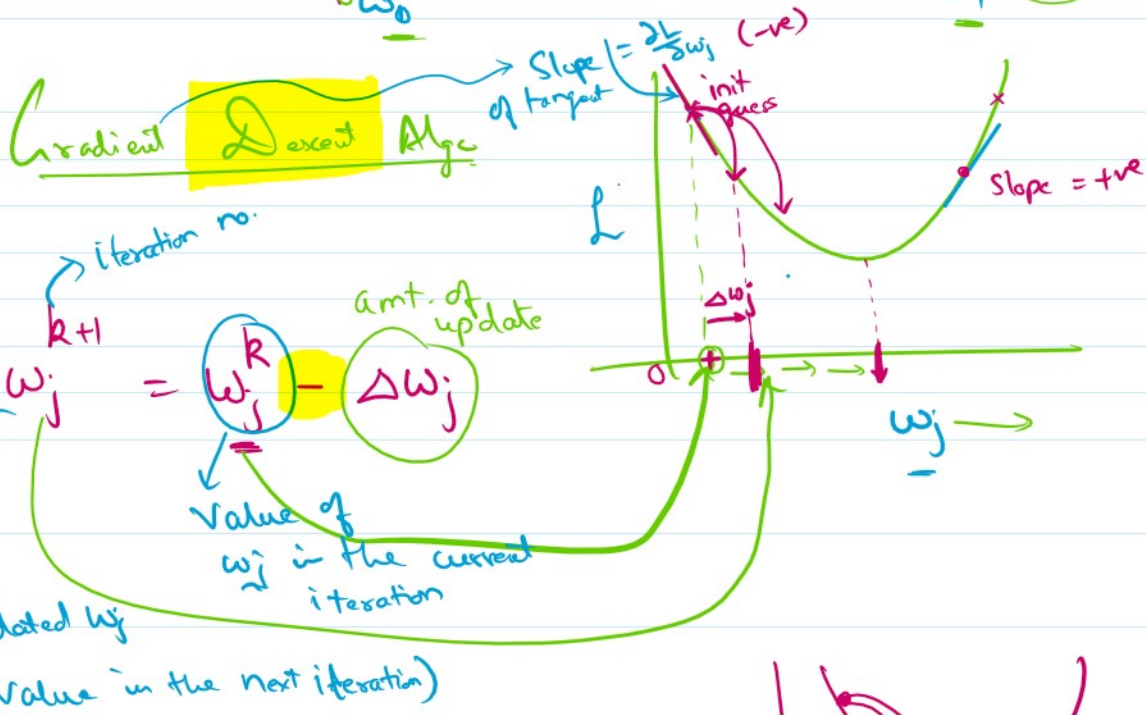 w₀
Gradient Descent Algo
Slope = ∂L/∂wj (-ve)
of tangent
init
guess
Slope = +ve
L
iteration no.
amt. of
update
wj^(k+1) = wj^k - Δwj
Δwj
0
wj →
Value of
wj in the current
iteration
dated wj
value in the next iteration)